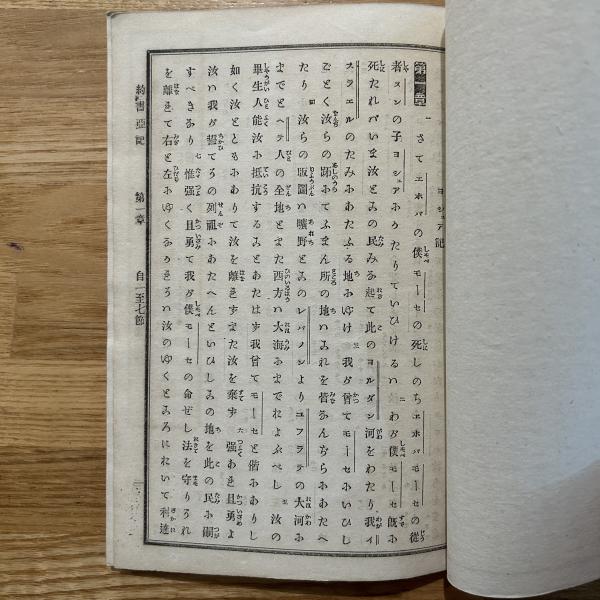 ヨシュア記
第一章 一 さてエホバの僕モーセの死しのちエホバモーセの從
者ヌンの子ヨシュアふかたりていひけるハ 二 わが僕モーセ既ふ
死たれバいま汝とみの民みる起て此のヨルダン河をわたり我イ
スラエルのたみふあたふる地ふゆけ 三 我が曾てモーセふいひし
ごとく汝らの蹠ふてふまん所の地ハみれを皆なんぢらふあたへ
たり 四 汝らの疆圍ハ曠野とみのレバノンよりユフラテの大河ふ
までとヘテ人の全地とまた西方ハ大海ふまでれよふべし 五 汝の
畢生人能汝ふ抵抗するみとあたはず我曾てモーセと偕ふありし
如く汝とともふありて汝を離きずまた汝を棄ず 六 强あき且勇よ
汝ハ我が誓てろの列祖ふあたへんといひしみの地を此の民ふ嗣
すべきあり 七 惟强く且勇て我が僕モーセの命ぜし法を守りろれ
を離きて右と左ふゆくあかきろハ汝のゆくとみろにれいて利達
約書亞記 第一章 自一至七節